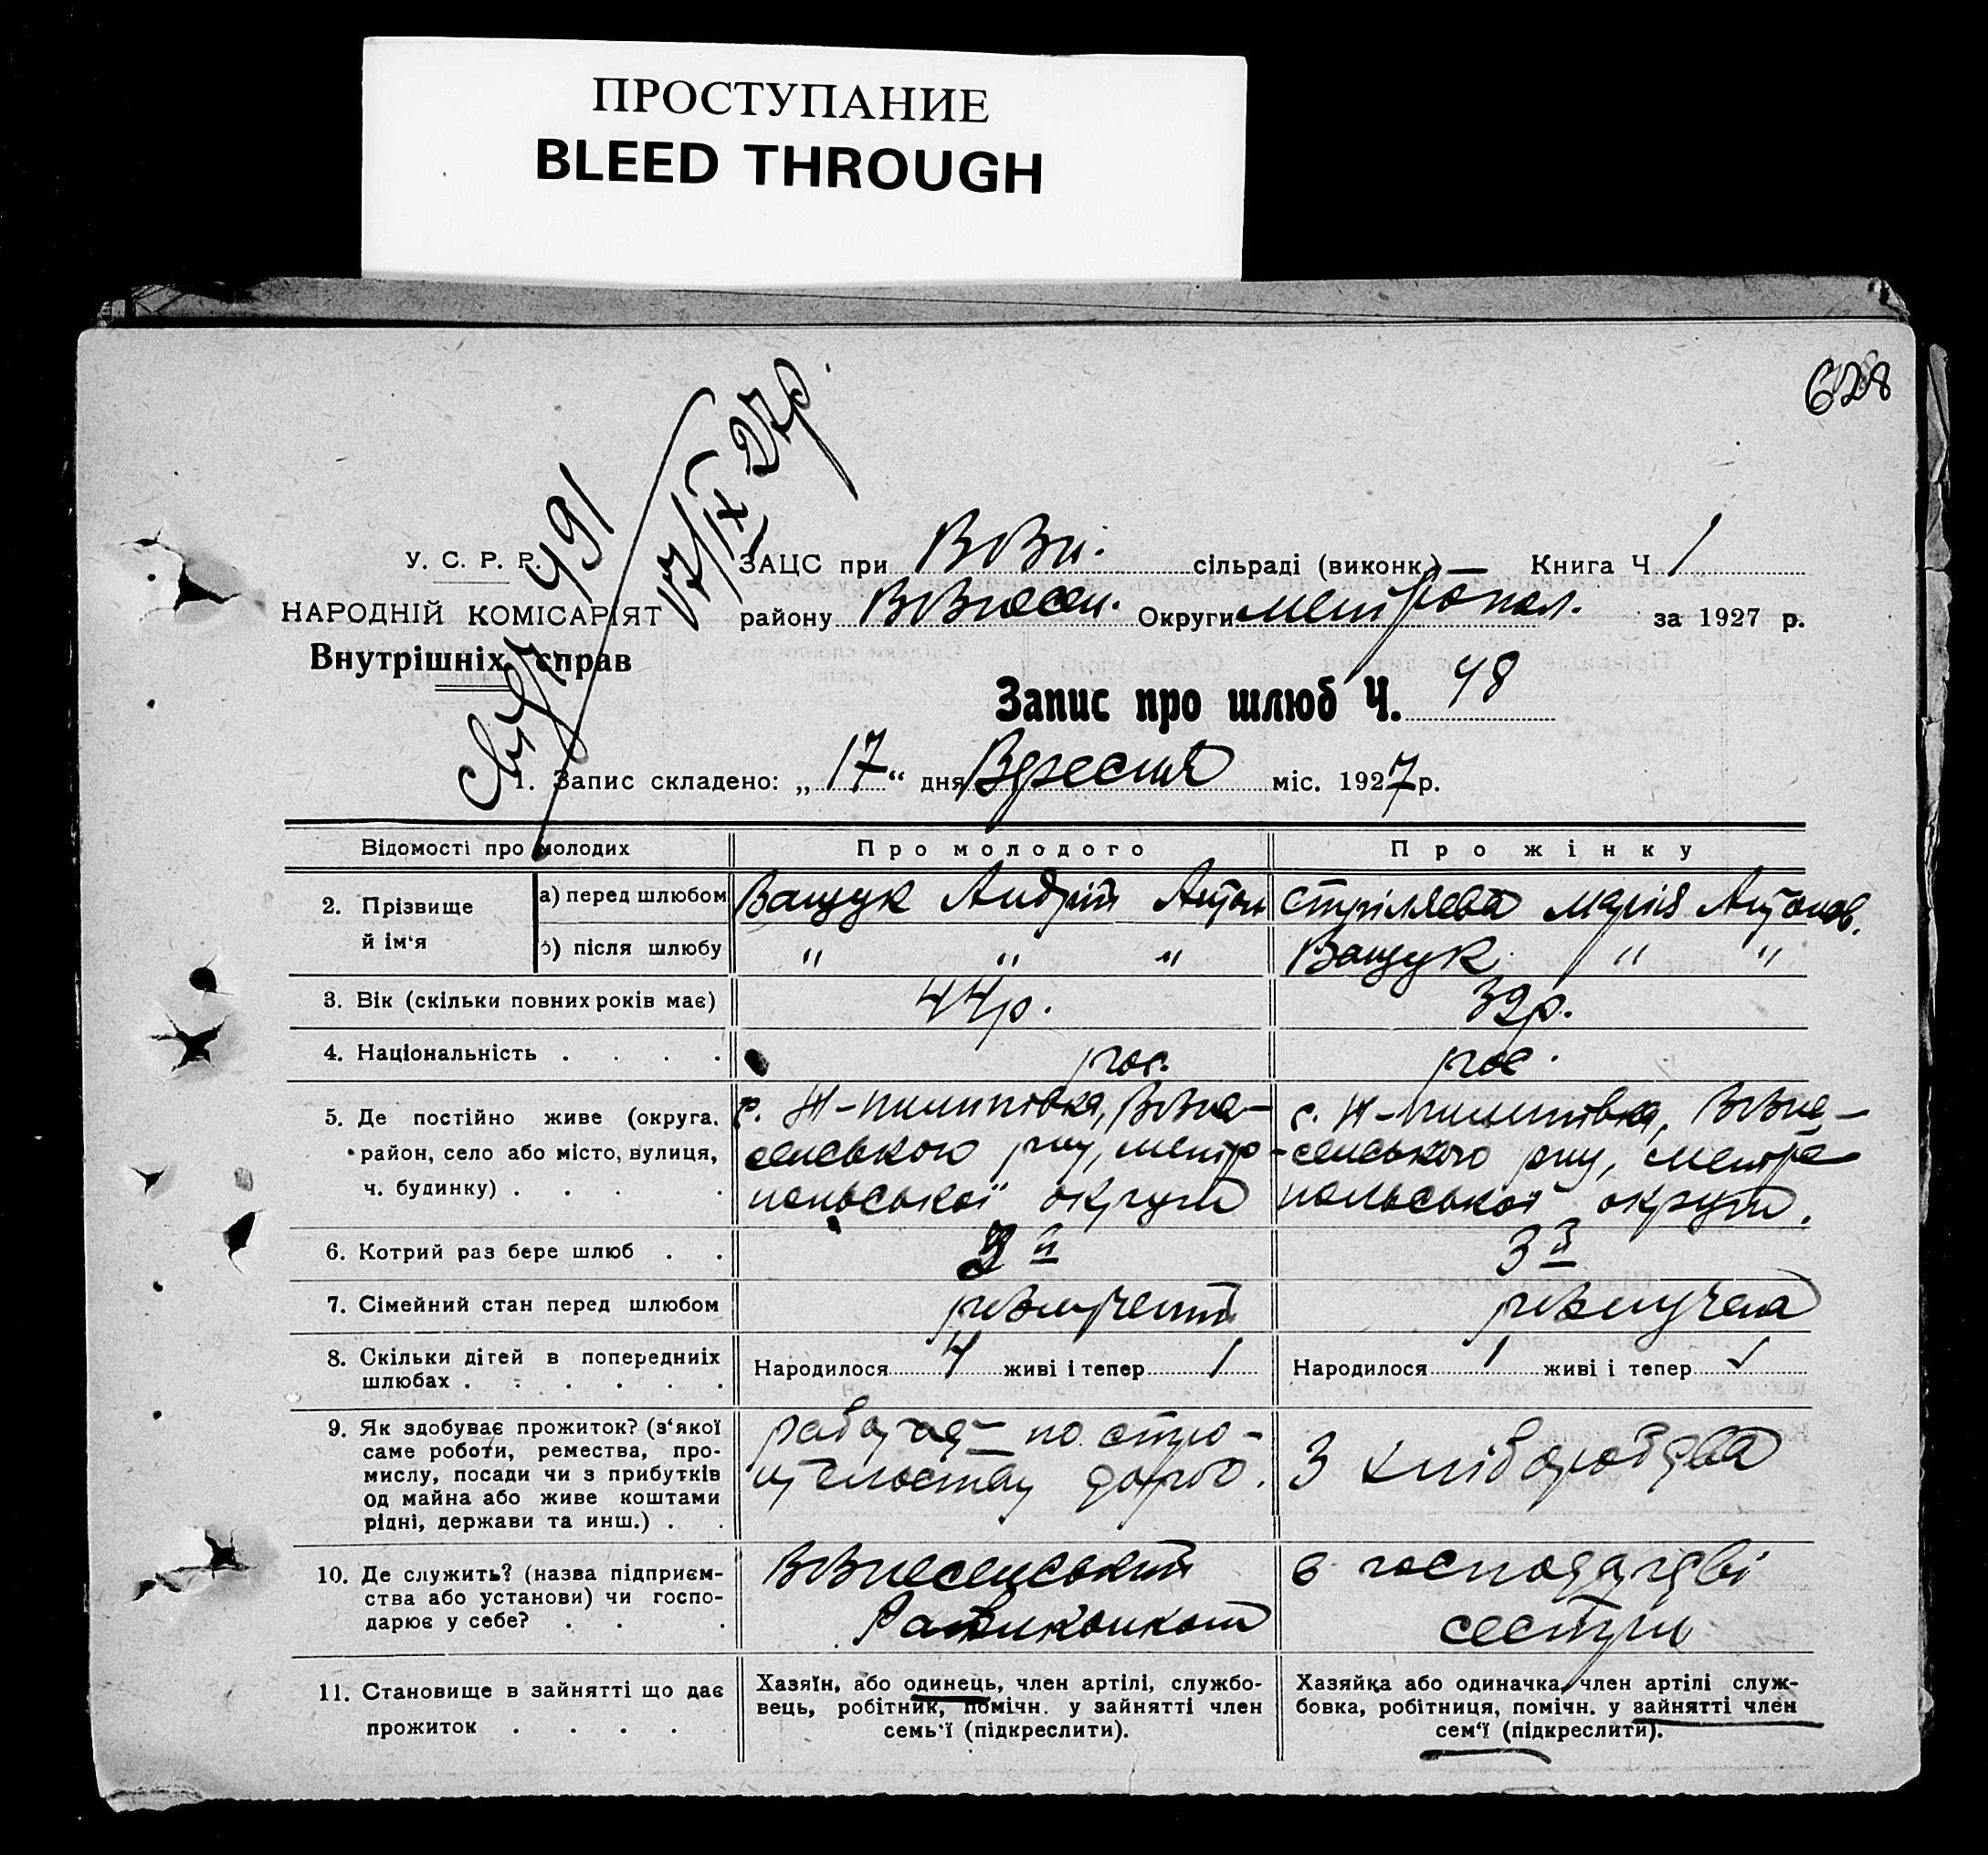 ПРОСТУПАНИЕ
BLEED THROUGH
628
491
17/IX 27р.
У. С. Р. Р.
НАРОДНІЙ КОМІСАРІЯТ
Внутрішніх справ
ЗАЦС при ВВзн. сільраді (виконк.) — Книга Ч 1
району ВВзнесен. Округи мелітопол. за 1927 р.
Запис про шлюб Ч. 48
1. Запис складено: „ 17 “ дня Вересня міс. 1927 р.
Відомості про молодих
Про молодого
Про жінку
2. Прізвище й ім‘я
а) перед шлюбом
Ващук Андрій Антон
Стріляева Марія Антонов.
б) після шлюбу
" " "
Ващук " "
3. Вік (скільки повних років має)
44р.
32р.
4. Національність . . . .
рос.
рос.
5. Де постійно живе (округа, район, село або місто, вулиця, ч. будинку) . . . .
пилипівка,
сенського р-ну, меліто-
польської округи
пилипівка,
сенського р-ну, меліто
польської округи.
6. Котрий раз бере шлюб . .
3й
3й
7. Сімейний стан перед шлюбом
розлучений
розлучена
8. Скільки дітей в попередниіх шлюбах . . . . . .
Народилося 4 живі і тепер 1
Народилося 1 живі і тепер 1
9. Як здобуває прожиток? (з‘якої
саме роботи, ремества, про-
мислу, посади чи з прибутків
од майна або живе коштами
рідні, держави та инш.) . .
по
З хліборобства
10. Де служить? (назва підприєм-
ства або установи) чи госпо-
дарює у себе? . . .
Райвиконком
в господарстві
сестри
11. Становище в зайнятті що дає
прожиток . . . . .
Хазяїн, або одинець, член артілі, службо-
вець, робітник, помічн. у зайнятті член
семь‘ї (підкреслити).
Хазяйка або одиначка, член артілі служ-
бовка, робітниця, помічн. у зайнятті член
сем‘ї (підкреслити).